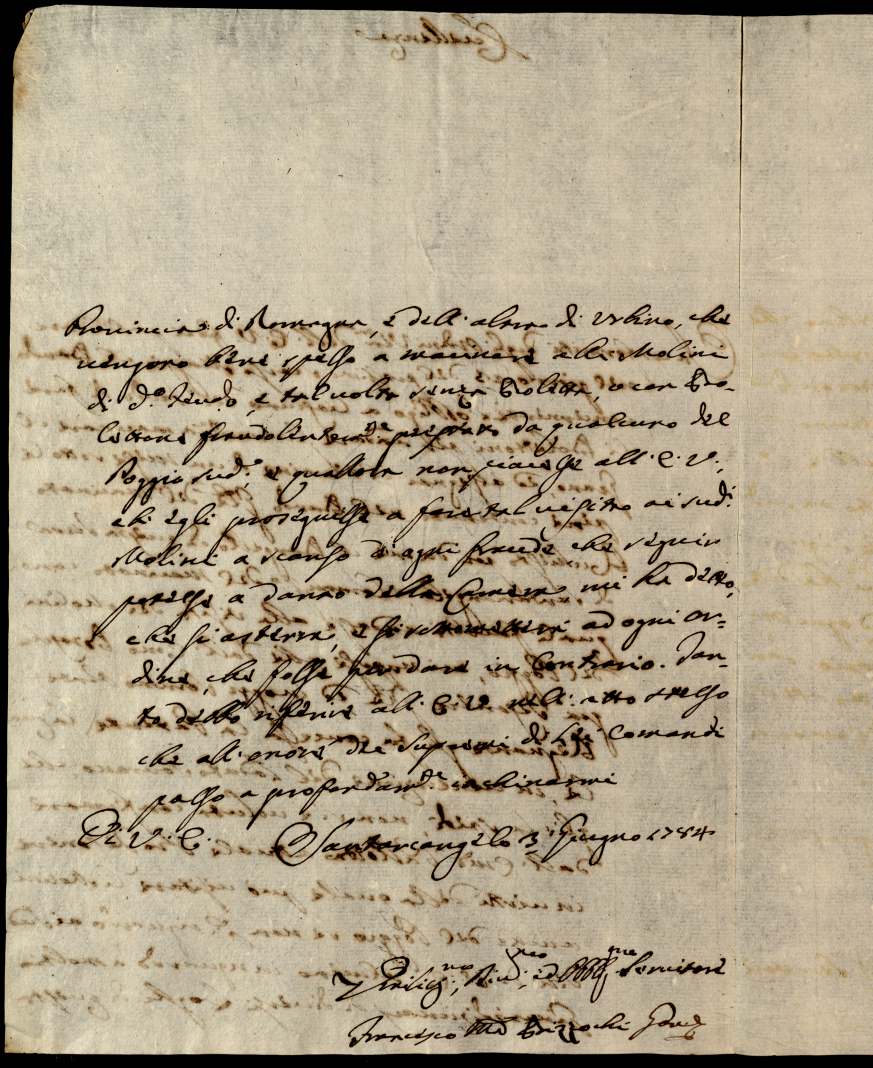 Provincia di Romagna, e dell'altra di Urbino, che
vengono bene spesso a macinare alli Molini
di d.º Feudo, e tal volta senza Bolletta, o con Bol-
lettone fraudolentem.te da qualcuno del
Poggio sud.º, e qualora non piacesse all'E. V.,
ch'egli proseguisse a fare tal visita ai sud.i
Molini a scanso d'ogni frode che seguir
potesse a danno della Camera, mi ha detto,
che si asterrà, e si sottometterà ad ogni or-
dine, che fosse per dare in contrario. Tan-
to debbo riferire all'E. V. nell'atto stesso
che all'onore dei supremi di Lei Comandi
passo a profondam.te inchinarmi
Di V. E. Santarcangelo 3 Giugno 1784
Servitore
Francesco M.a